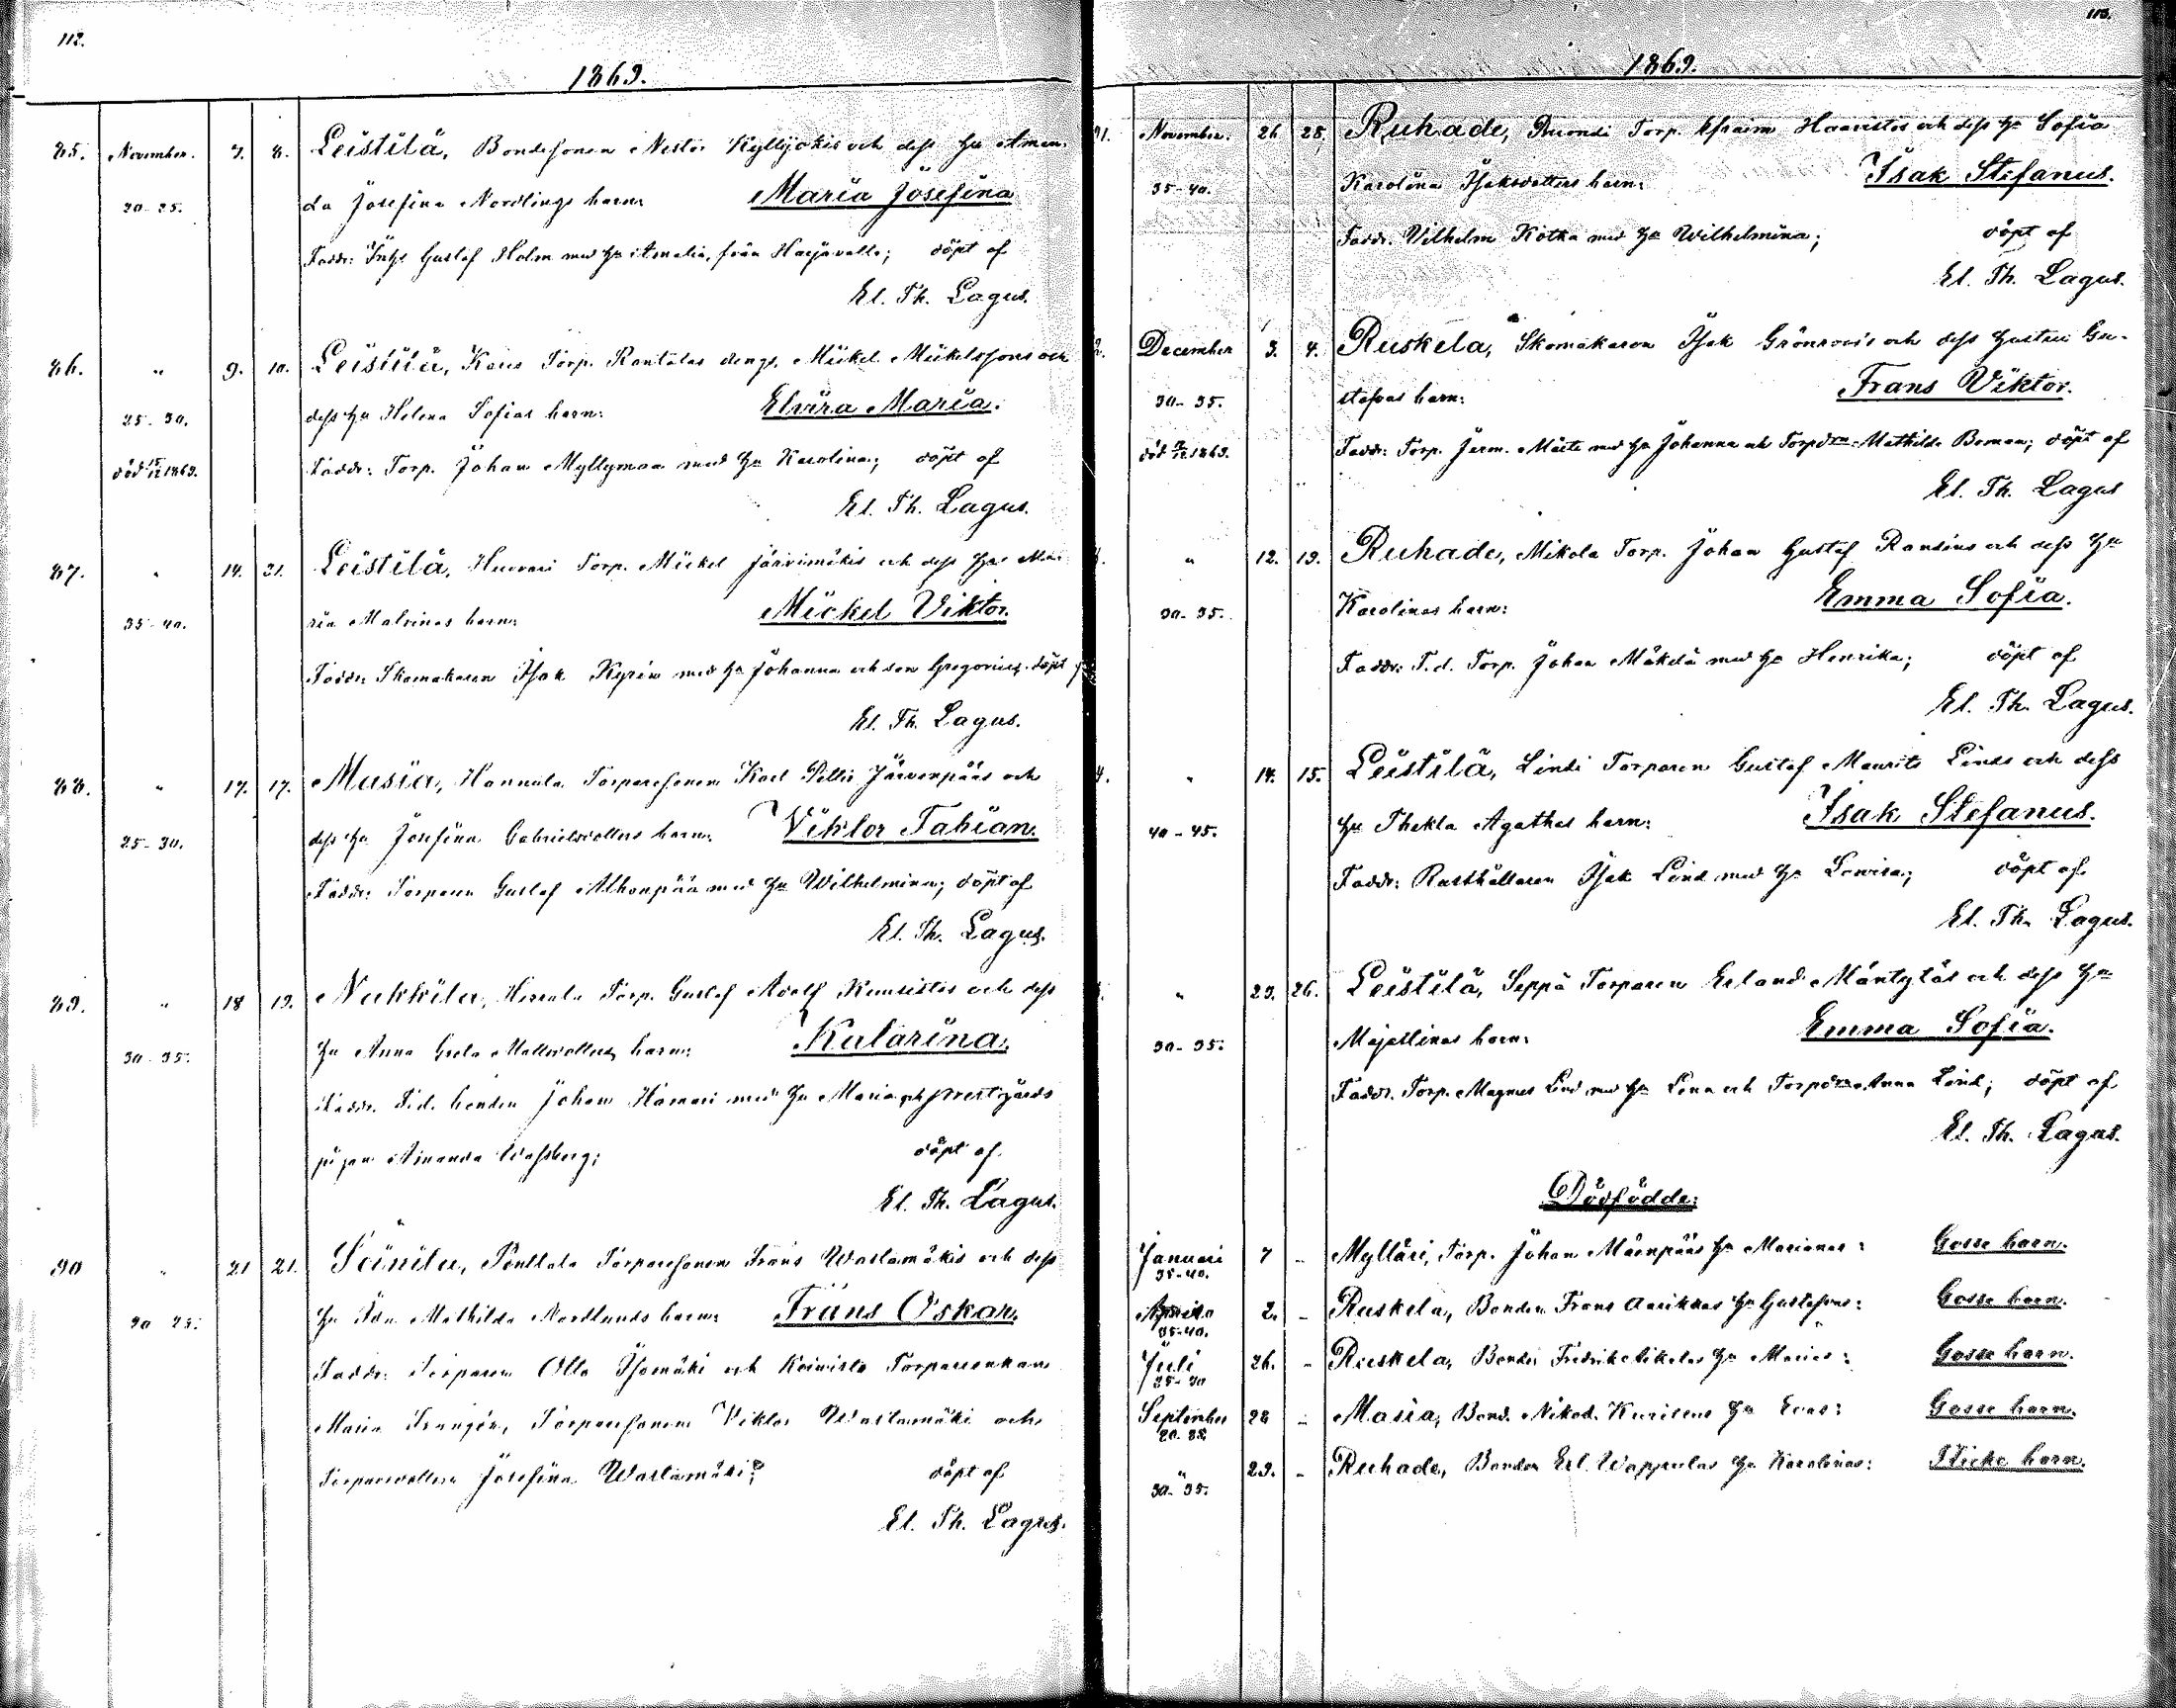 112.
1869.
85. November. 7. 8. Leistilä, Bondesonen Nestor Kyllijokis och dess hu Aman-
20-25. da Josefina Nordlings barn: Maria Josefina
Faddr: Inhs Gustaf Holm med hu Amalia, från Harjavalla; döpt af
El. Th. Lagus.
86. " 9. 10. Leistilä, Torp. Rantalas drengs. Mickel Mickelssons och
25-30. dess hu Helena Sofias barn: Elvira Maria.
död 15/12 1869. Faddr: Torp. Johan Myllymaa med hu Karolina; döpt af
El. Th. Lagus.
87. " 14. 21. Leistilä, Torp. Mickel Järvimäkis och dess hu Ma-
35-40. ria Malvinas barn: Mickel Viktor.
Faddr: Skomakaren Isak Kyrén med hu Johanna och son Gregorius, döpt
El. Th. Lagus.
88. " 17. 17. Masia, Hannula Torparesonen Karl Järvenpääs och
25-30. dess hu Josefina Gabrielsdotters barn: Viktor Fabian.
Faddr: Torparen Gustaf Alhonpää med hu Wilhelmina; döpt af
El. Th. Lagus.
89. " 18 19. Nakkila, Torp. Gustaf Adolf Kuusistos och dess
30-35. hu Anna Greta Mattsdotters barn: Katarina.
Faddr. F.d. bonden Johan Hannari med hu Maria och prestgårds
pigan Amanda Wassberg; döpt af
El. Th. Lagus.
90 " 21 21. Soinila, Penttala Torparesonen Frans Wastamäkis och dess
20 25. hu Ida Mathilda Nordlunds barn: Frans Oskar.
Faddr: Torparen Olla Isomäki och Koivisto Torpareenkan
Maria Torparesonen Viktor Wastamäki och
Torparedottern Josefina Wastamäki; döpt af
El. Th. Lagus.
113.
1869.
91. November. 26 28. Ruhade, Torp. Efraim Haavistos och dess hu Sofia
35-40. Karolina Isaksdotters barn: Isak Stefanus.
Faddr. Vilhelm Kotka med hu Wilhelmina; döpt af
El. Th. Lagus.
2. December 3. 4. Ruskela, Skomakaren Isak Grönroos's och dess hustru Gu-
30-35. stafvas barn: Frans Viktor.
död 1869. Faddr: Torp. Jerm. med hu Johanna och Torpdrn Mathilda Boman; döpt af
El. Th. Lagus
" 12. 13. Ruhade, Mikola Torp. Johan Gustaf Randéns och dess hu
30-35. Karolinas barn: Emma Sofia.
Faddr: F.d. Torp. Johan Mäkelä med hu Henrika; döpt af
El. Th. Lagus.
4. " 14. 15. Leistilä, Lindi Torparen Gustaf Maurits Linds och dess
40-45. hu Thekla Agathas barn: Isak Stefanus.
Faddr: Rusthållaren Isak Lind med hu Lovisa; döpt af
El. Th. Lagus.
" 23. 26. Leistilä, Seppä Torparen Erland Mäntyläs och dess hu
30-35. Majastinas barn: Emma Sofia.
Faddr. Torp. Magnus Lind med hu Lena och Torpdrn Anna Lind; döpt af
El. Th. Lagus.
Dödfödde:
Januari 7 - Mylläri, Torp. Johan Mäenpääs hu Marianas: Gosse barn.
35-40.
Aprill 2. - Ruskela, Bonden Frans Aarikkas hu Gustafvas: Gosse barn.
35-40.
Juli 26. - Ruskela, Bonden Fredrik Mikolas hu Marias: Gosse barn.
25-30
September 28 - Masia, Bond. Nikod. Kuritens hu Evas: Gosse barn.
" 29. - Ruhade, Bonden Erl. Wappulas hu Karolinas: Flicke barn.
30-35.